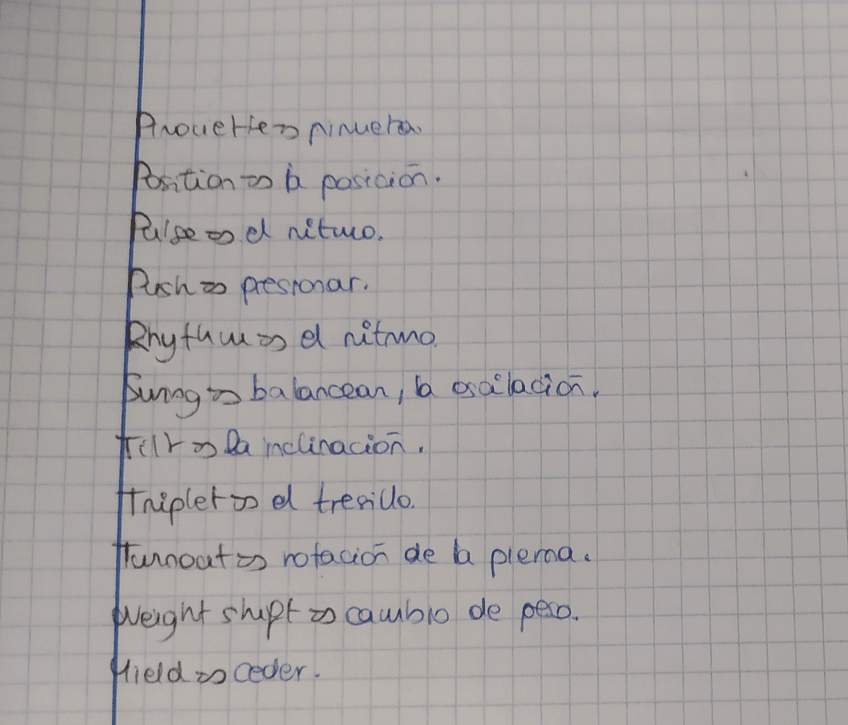 Pirouette => pirueta.
Position => la posición.
Pulse => el ritmo.
Push => presionar.
Rhythm => el ritmo.
Swing => balancear, la oscilación.
Tilt => la inclinación.
Triplet => el tresillo.
Turnout => rotación de la pierna.
Weight shift => cambio de peso.
Yield => ceder.